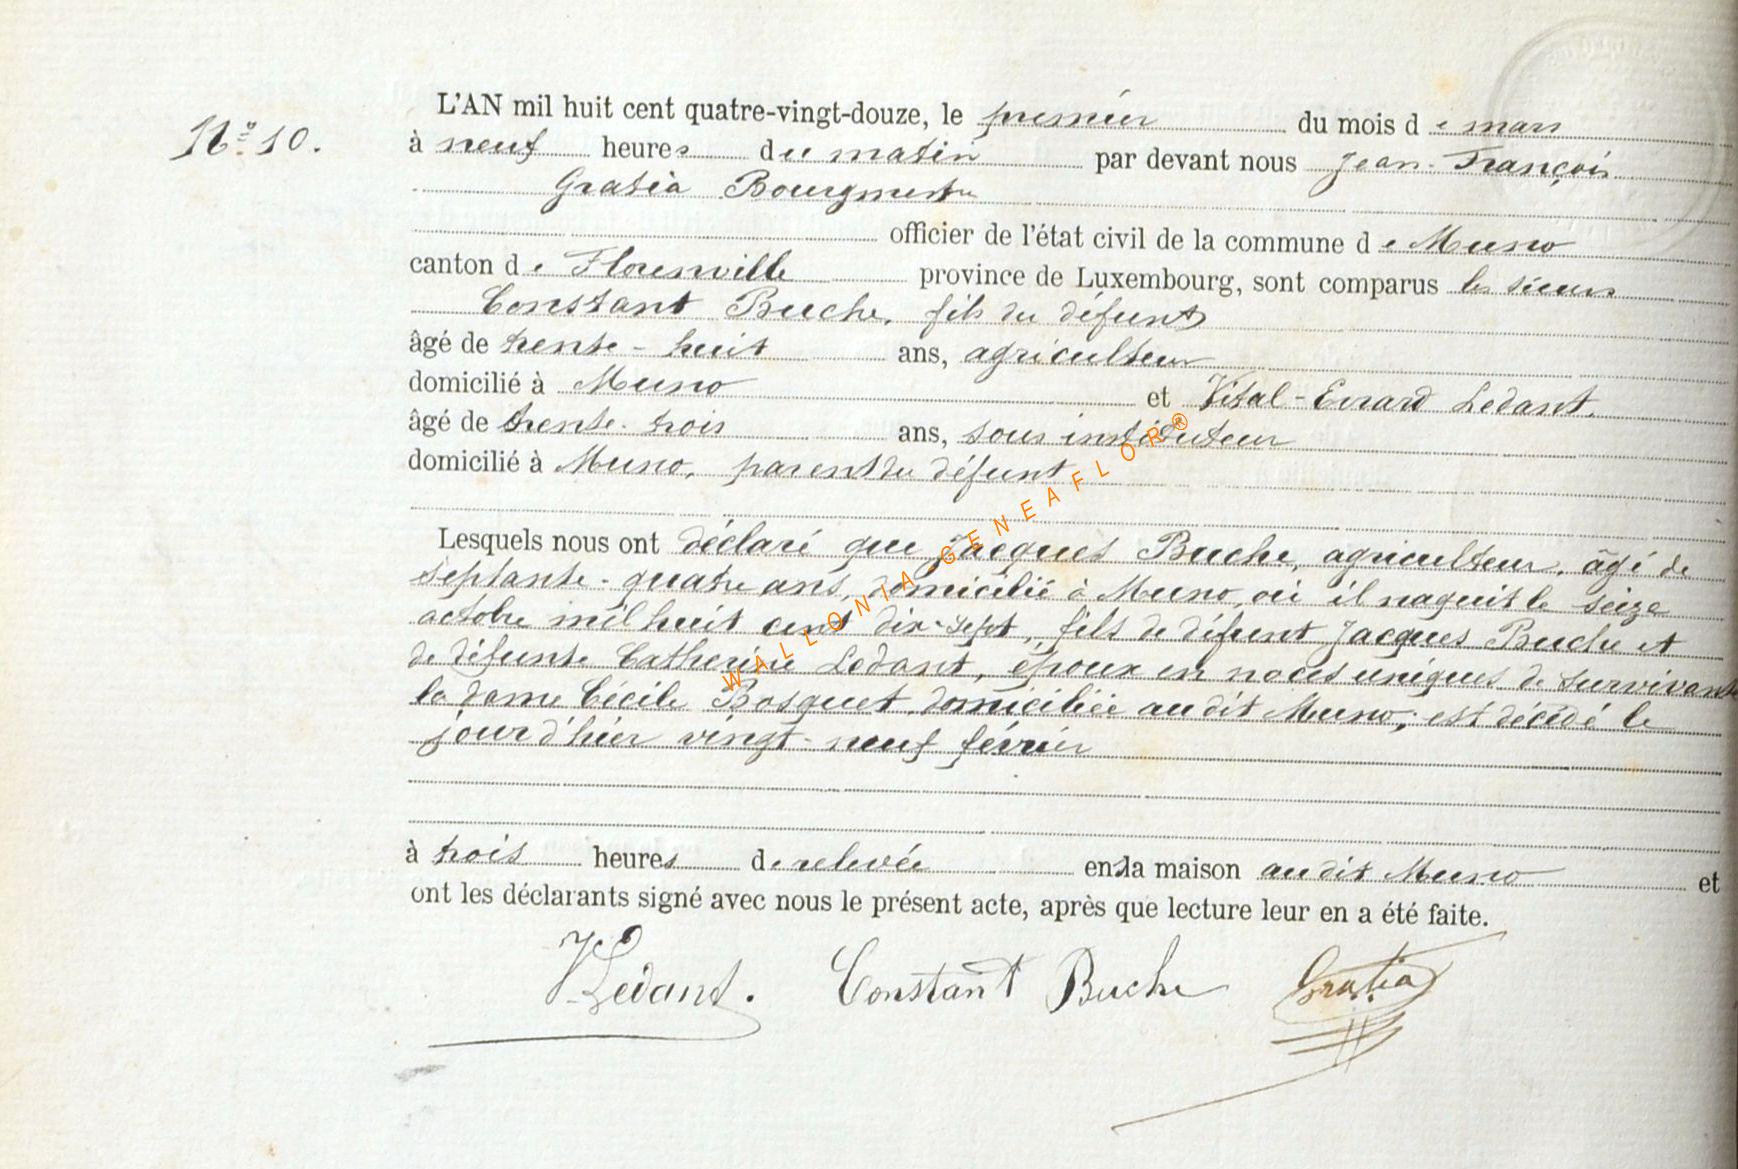 L'AN mil huit cent quatre-vingt-douze, le premier du mois de mars
N° 10.
à neuf heures du matin par devant nous Jean-François
Gratia Bourgmestre
officier de l'état civil de la commune de Muno
canton de Florenville province de Luxembourg, sont comparus les sieurs
Constant Buche, fils du défunt
âgé de trente-huit ans, agriculteur
domicilié à Muno et Vital-Evrard Ledant,
âgé de trente-trois ans, sous instituteur
domicilié à Muno, parent du défunt
Lesquels nous ont déclaré que Jacques Buche, agriculteur, âgé de
septante-quatre ans, domicilié à Muno, où il naquit le seize
octobre mil huit cent dix-sept, fils de défunt Jacques Buche et
de défunte Catherine Ledant, époux en noces uniques de survivante
la dame Cécile Bosquet, domiciliée au dit Muno, est décédé le
jour d'hier vingt-neuf février
à trois heures de relevée en la maison au dit Muno et
ont les déclarants signé avec nous le présent acte, après que lecture leur en a été faite.
V. Ledant. Constant Buche Gratia
WALLONIA GENEAFLOR®